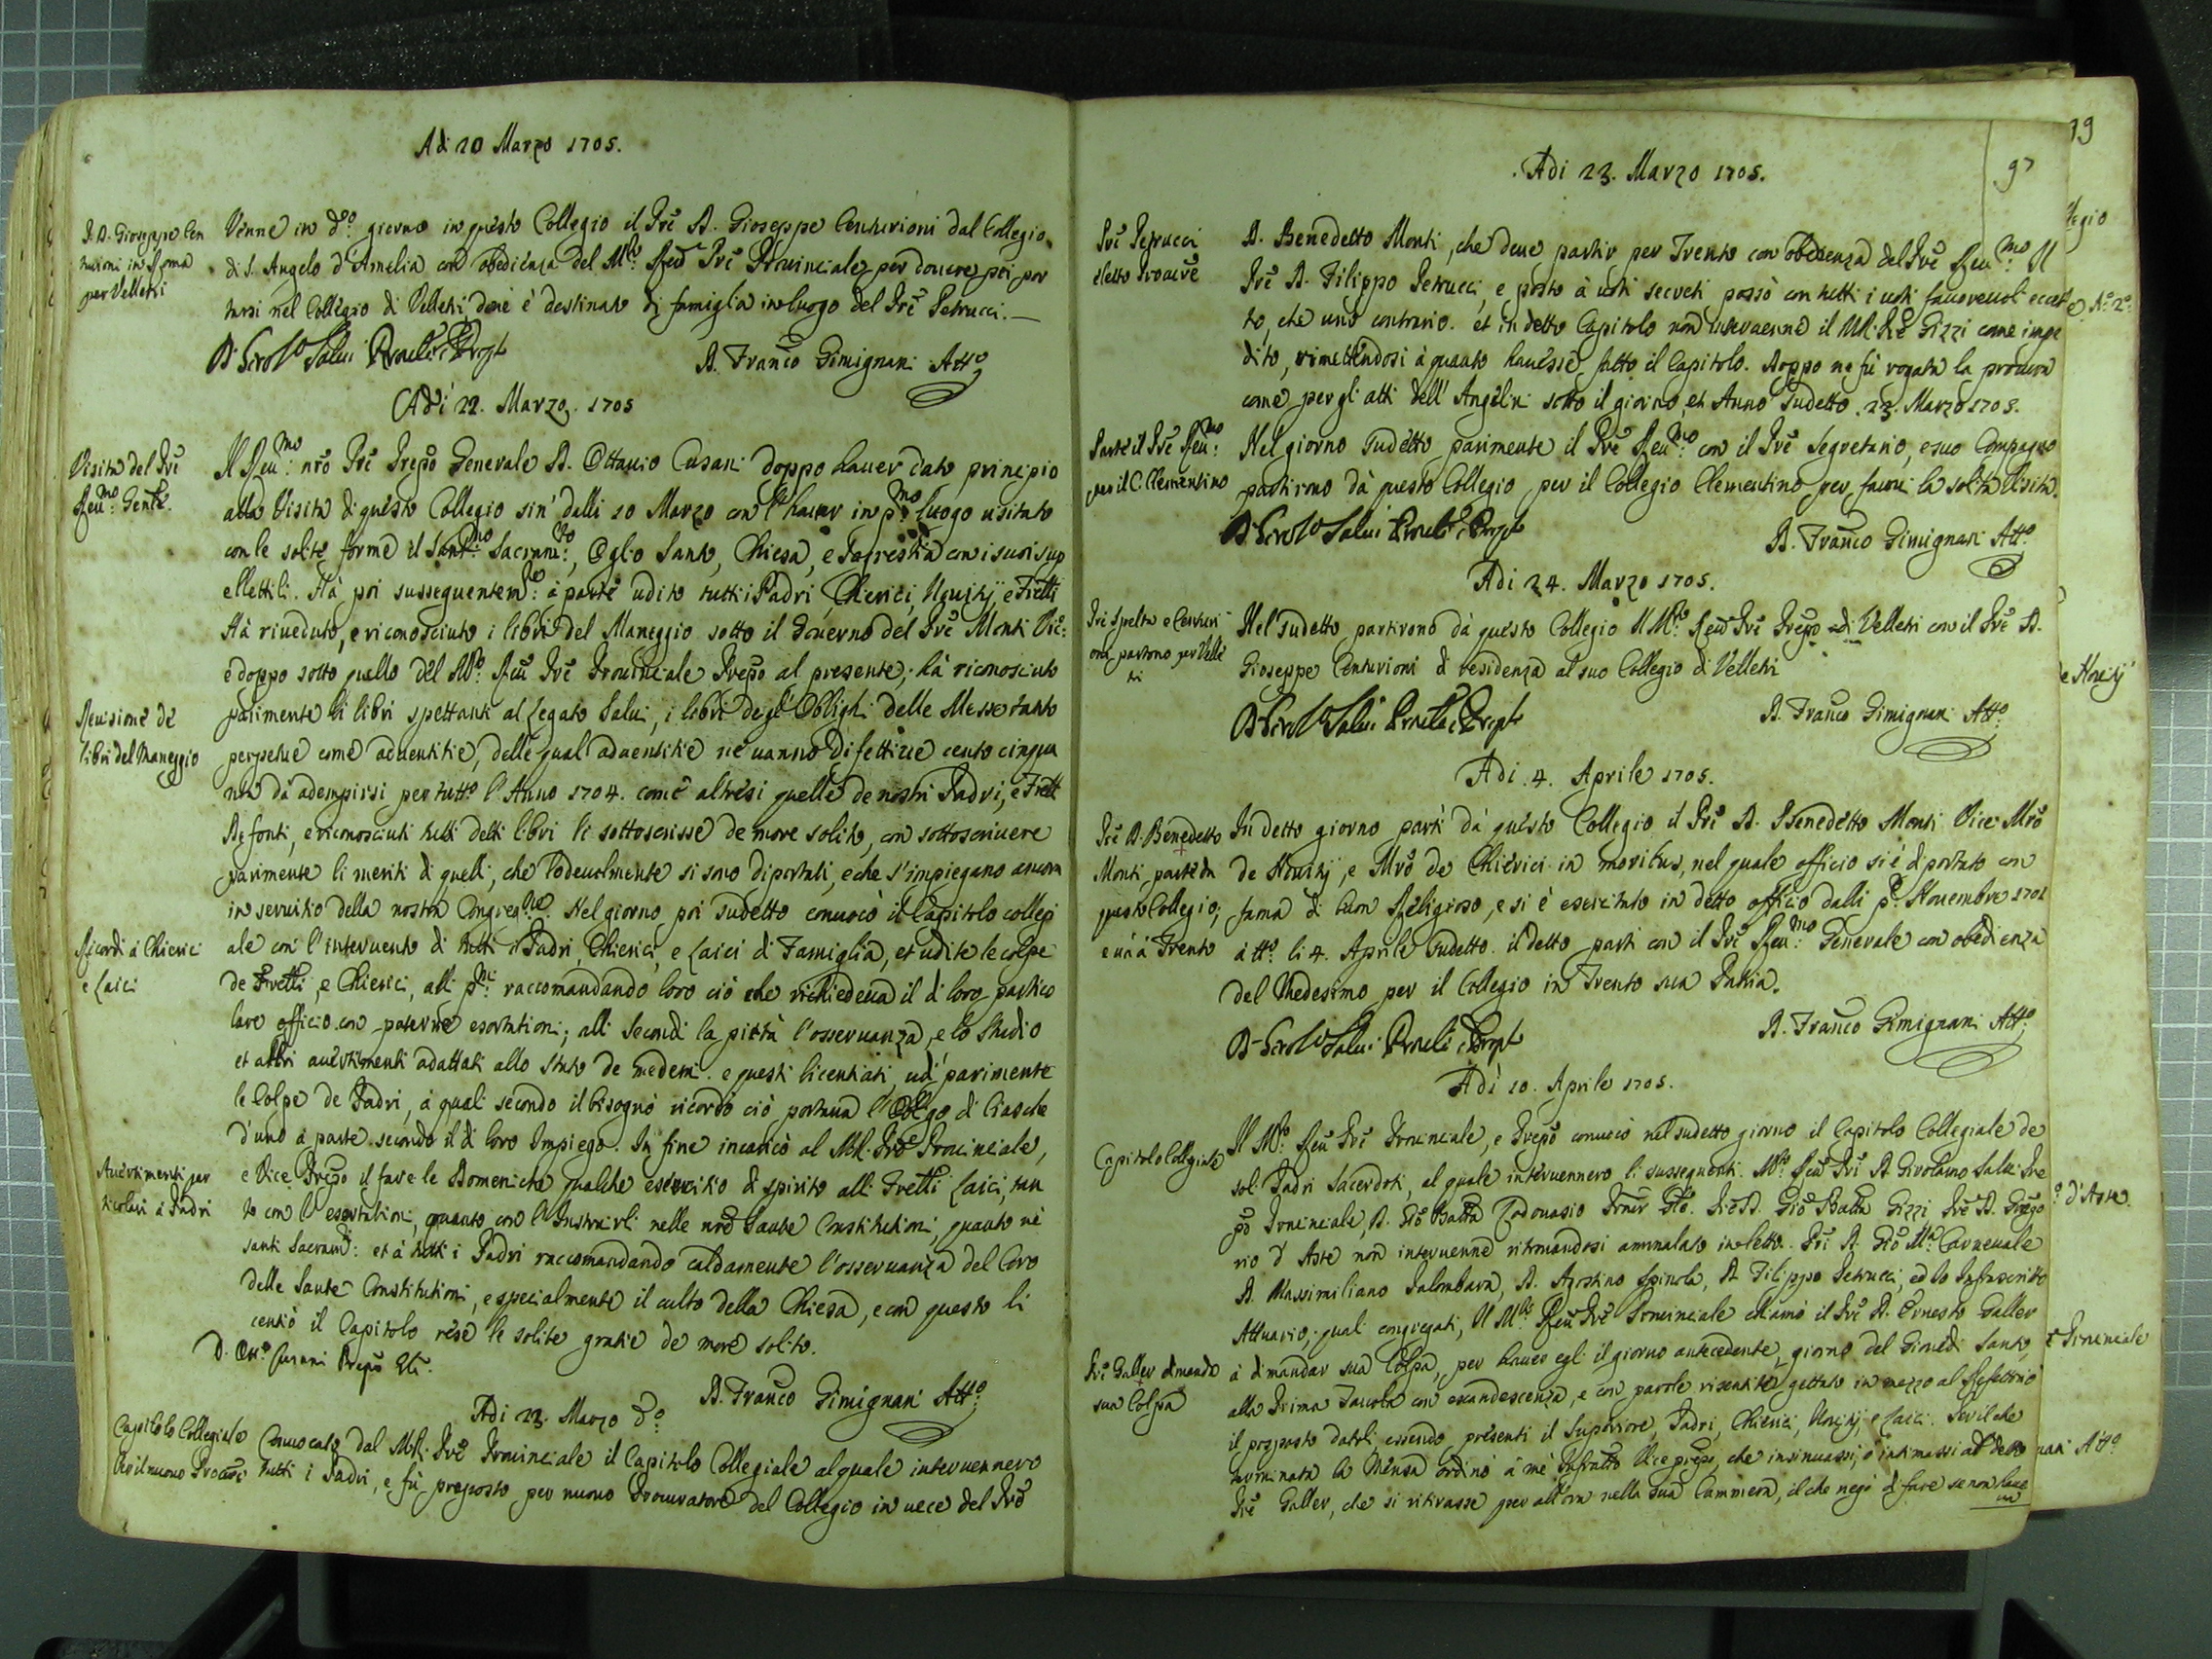 Adi 20 Marzo 1705.
P. D. Gioseppe Cen
turioni in Roma
per Velletri
Venne in d.o giorno in questo Collegio il Pre D. Gioseppe Centurioni dal Collegio
di S. Angelo d'Amelia con obedienza del M.o Reu Pre Prouinciale per douere poi por
tarsi nel Collegio di Velletri doue è destinato di famiglia in luogo del Pre Petrucci.
D. Girol.o Salui Proule e Prep.to
D. Franco Gimignani Att.o
Adi 22. Marzo. 1705
Visita del Pre
Reu.mo Genle.
Il Reu.mo nro Pre Prepo Generale D. Ottauio Cusani doppo hauer dato principio
alla Visita di questo Collegio sin' dalli 10 Marzo con l'hauer in p.mo luogo uisitato
con le solite forme il Sant.mo Sacram.to, Oglio Santo, Chiesa, e Sagrestia con i suoi sup
ellettili. Hà poi susseguentem.te à parte udito tutti i Padri Chierici, Nouitij e Fretti
Hà riueduto, e riconosciuto i libri del Maneggio sotto il Gouerno del Pre Monti Vic:
e doppo sotto quello del M.o Reu Pre Prouinciale Prepo al presente; hà riconosciuto
Reuisione de
libri del Maneggio
parimente li libri spettanti al Legato Salui, i libri degl'Oblighi delle Messe tanto
perpetue come auuentitie, delle qual aduentitie ne uanno difettiue cento cinqua
nta da adempirsi per tutto l'Anno 1704. come altresi quelle de nostri Padri, e Frett
Defonti, e riconosciuti tutti detti libri li sottoscrisse de more solito, con sottoscriuere
parimente li meriti di quelli, che lodeuolmente si sono diportati, e che s'impiegano ancora
in seruitio della nostra Congreg.ne. Nel giorno poi sudetto conuocò il Capitolo collegi
Ricordi à Chierici
e Laici
ale con l'interuento di tutti i Padri, Chierici, e Laici di Famiglia, et udite le colpe
de Fretti, e Chierici, alli p.mi raccomandando loro ciò che richiedeua il di loro partico
lare officio con paterne esortationi; alli secondi la pietà l'osseruanza, e lo studio
et altri auertimenti adattati allo stato de medemi. e questi licentiati, udì parimente
le Colpe de Padri, à quali secondo il bisogno ricordò ciò portaua l'Obligo di ciasche
d'uno à parte secondo il di loro Impiego. In fine incaricò al M.R. Pre Prouinciale,
Auertimenti par
ticolari à Padri
e Vice Prepo il fare le Domeniche qualche esercitio di spirito alli Fretti Laici, tan
to con l'esortationi, quanto con l'Instruirli nelle nre Sante Constitutioni, quanto nè
santi Sacram.ti: et à tutti i Padri raccomandando caldamente l'osseruanza del Coro
delle Sante Constitutioni, e specialmente il culto della Chiesa, e con questo li
centiò il Capitolo rese le solite gratie de more solito.
D. Ott.o Cusani Prepo Gle.
D. Franco Gimignani Att.o
Adi 23. Marzo d.o
Capitolo Collegiale
per il nuouo Procure
Conuocato dal M.R. Pre Prouinciale il Capitolo Collegiale al quale interuennero
tutti i Padri, e fù proposto per nuouo Procuratore del Collegio in uece del Pre
97
Adi 23. Marzo 1705.
Pre Petrucci
eletto Procure
D. Benedetto Monti, che deue partir per Trento con obedienza del Pre Reu.mo Il
Pre D. Filippo Petrucci, e posto à uoti secreti passò con tutti i uoti fauoreuoli eccet
to, che uno contrario. et in detto Capitolo non interuenne il M.R. Pre Pizzi come impe
dito, rimettendosi à quanto hauesse fatto il Capitolo. Doppo ne fù rogata la procura
come per gl'atti dell'Angelini sotto il giorno, et Anno sudetto. 23. Marzo 1705.
Parte il Pre Reu.mo
per il C. Clementino
Nel giorno sudetto parimente il Pre Reu.mo con il Pre Segretario, e suo Compagno
partirono dà questo Collegio per il Collegio Clementino per farui la solita Visita.
D. Girol.o Salui Proule e Prep.to
D. Franco Gimignani Att.o
Adi 24. Marzo 1705.
Pri Spelta e Centuri
oni partono per Velle
tri
Nel sudetto partirono dà questo Collegio Il M.o Reu Pre Prepo di Velletri con il Pre D.
Gioseppe Centurioni di residenza al suo Collegio di Velletri
D. Girol.o Salui Proule e Prep.to
D. Franco Gimignani Att.o
Adi .4. Aprile 1705.
Pre D. Benedetto
Monti parte da
questo Collegio,
e uà à Trento
In detto giorno partì dà questo Collegio il Pre D. Benedetto Monti Vice Mro
de Nouitij, e Mro de Chierici in moribus, nel quale officio si è diportato con
fama di buon Religioso, e si è esercitato in detto officio dalli p.o Nouembre 1702
à tto. li 4. Aprile sudetto. il detto partì con il Pre Reu.mo Generale con obedienza
del Medesimo per il Collegio in Trento sua Patria.
D. Girol.o Salui Proule e Prep.to
D. Franco Gimignani Att.o
Adi 10. Aprile 1705.
Capitolo Collegiale
Il M.o Reu Pre Prouinciale, e Prepo conuocò nel sudetto giorno il Capitolo Collegiale de
soli Padri Sacerdoti, al quale interuennero li susseguenti. M.o Reu Pre D. Girolamo Salui Pre
po Prouinciale, D. Gio Batta Pizzi Pre D. Grego
rio d'Aste non interuenne ritrouandosi ammalato in letto. Pri D. Gio M.a Carneuale
D. Massimiliano Palombara, D. Agostino Spinola, D. Filippo Petrucci, ed io Infrascritto
Attuario; quali congregati, Il M.o Reu Pre Prouinciale chiamò il Pre D. Ernesto Galler
Pre Galler dimanda
sua Colpa
à dimandar sua Colpa, per hauer egli il giorno antecedente, giorno del Giouedi Santo,
alla Prima Tauola con escandescenza, e con parole risentite gettato in mezzo al Refettorio
il posposto datoli essendo presenti il Superiore, Padri, Chierici, Nouitij, e Laici. Per il che
terminata la Mensa ordinò à me Infratto Vice prepo, che insinuassi, ò intimassi al detto
Pre Galler, che si ritirasse per allora nella sua Cammera, il che negò di fare se non haue
ua
19
legio
e Nouitij
d'Aste.
Prouinciale
nani Att.o